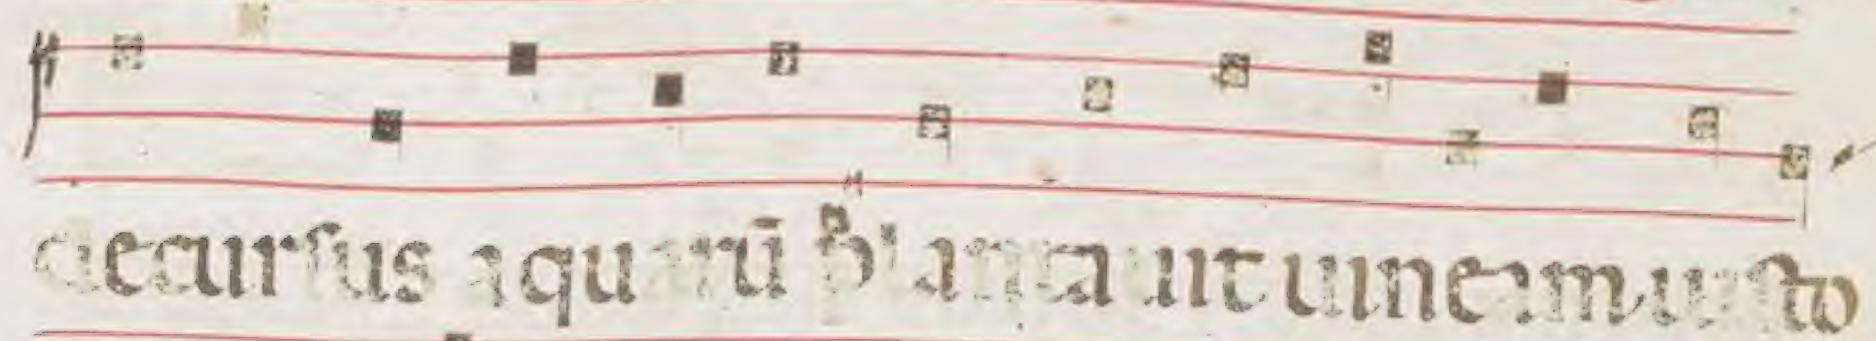 decursus aquarū plantauit uineam iusto